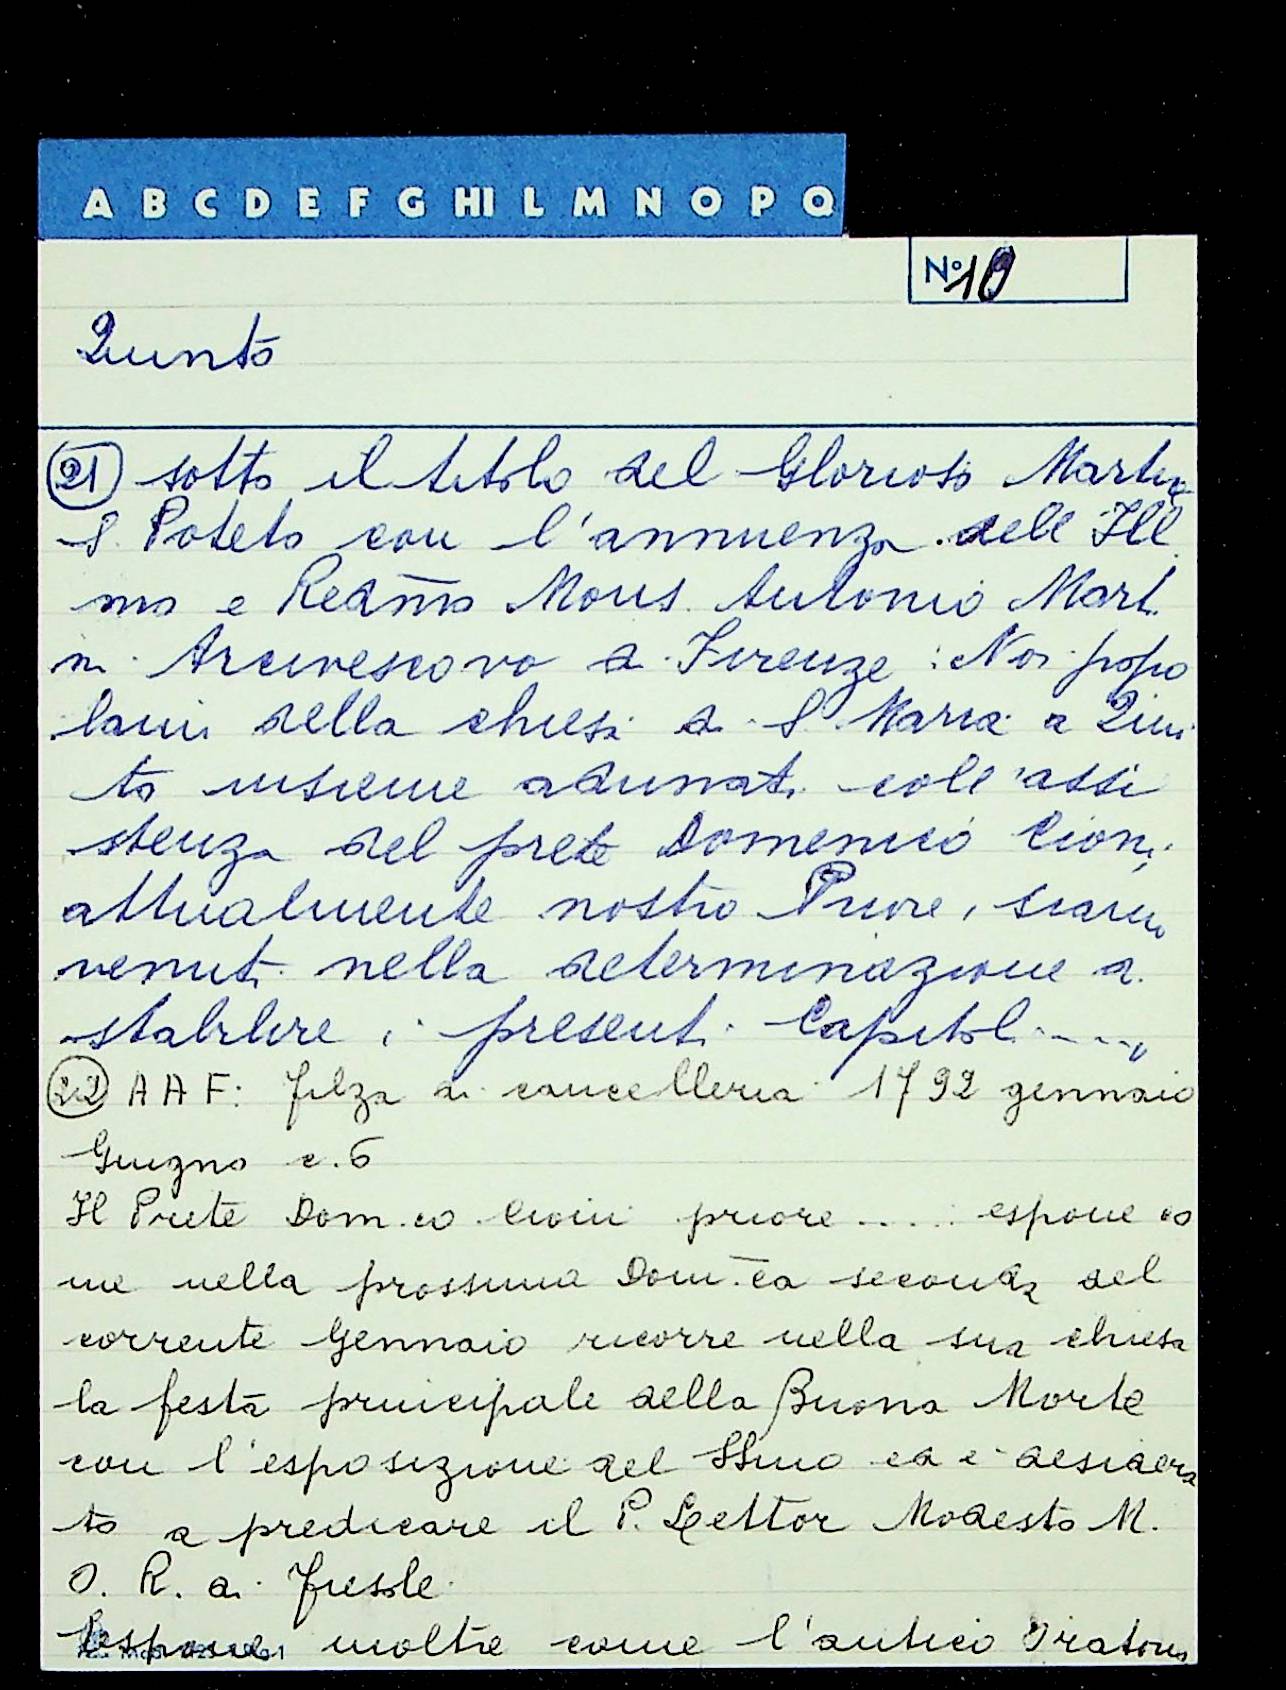 A B C D E F G HI L M N O P Q
No 10
Quinto
21 sotto il titolo del Glorioso Martire
S. Poteto con l'annuenza dell' Ill
mo e Redm̄o Mons. Antonio Mart
ni Arcivescovo di Firenze : Noi popo
lani della chiesa di S. Maria a Quin
to insieme adunati coll'assi
stenza del prete Domenico Cioni,
attualmente nostro Priore, siamo
venuti nella determinazione di
stabilire i presenti Capitoli ....,
22 A A F: filza di cancelleria 1792 gennaio
Giugno c. 6
Il Prete Dom.co Cioni priore ..... espone co
me nella prossima Dom.ca seconda del
corrente Gennaio ricorre nella sua chiesa
la festa principale della Buona Morte
con l'esposizione del SSmo ed è desidera
to a predicare il P. Lettor Modesto M.
O. R. di Fiesole.
Espone inoltre come l'antico Oratorio